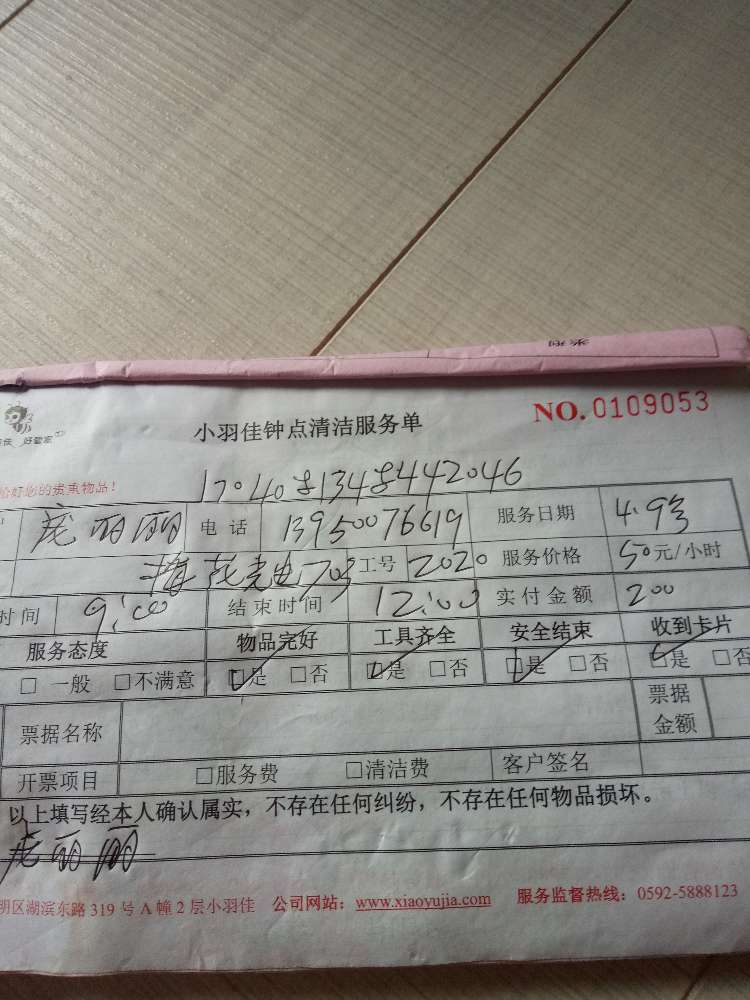 小羽佳钟点清洁服务单 NO. 0109053
好管家
您的贵重物品！
庞丽丽 电话 13950076619 服务日期 4.9号
703 工号 2020 服务价格 50元/小时
时间 9:00 结束时间 12:00 实付金额 200
服务态度 物品完好 工具齐全 安全结束 收到卡片
□ 一般 □不满意 □是 □否 □是 □否 □是 □否 □是 □否
票据名称 票据金额
开票项目 □服务费 □清洁费 客户签名
以上填写经本人确认属实，不存在任何纠纷，不存在任何物品损坏。
庞丽丽
明区湖滨东路 319 号 A 幢 2 层小羽佳 公司网站：www.xiaoyujia.com 服务监督热线：0592-5888123